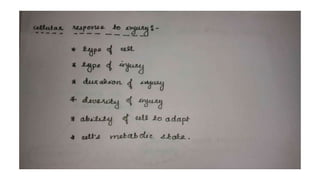 cellular response to injury :-
* type of cell
* type of injury
* duration of injury
* diversity of injury
* ability of cell to adapt
* cell's metabolic state.